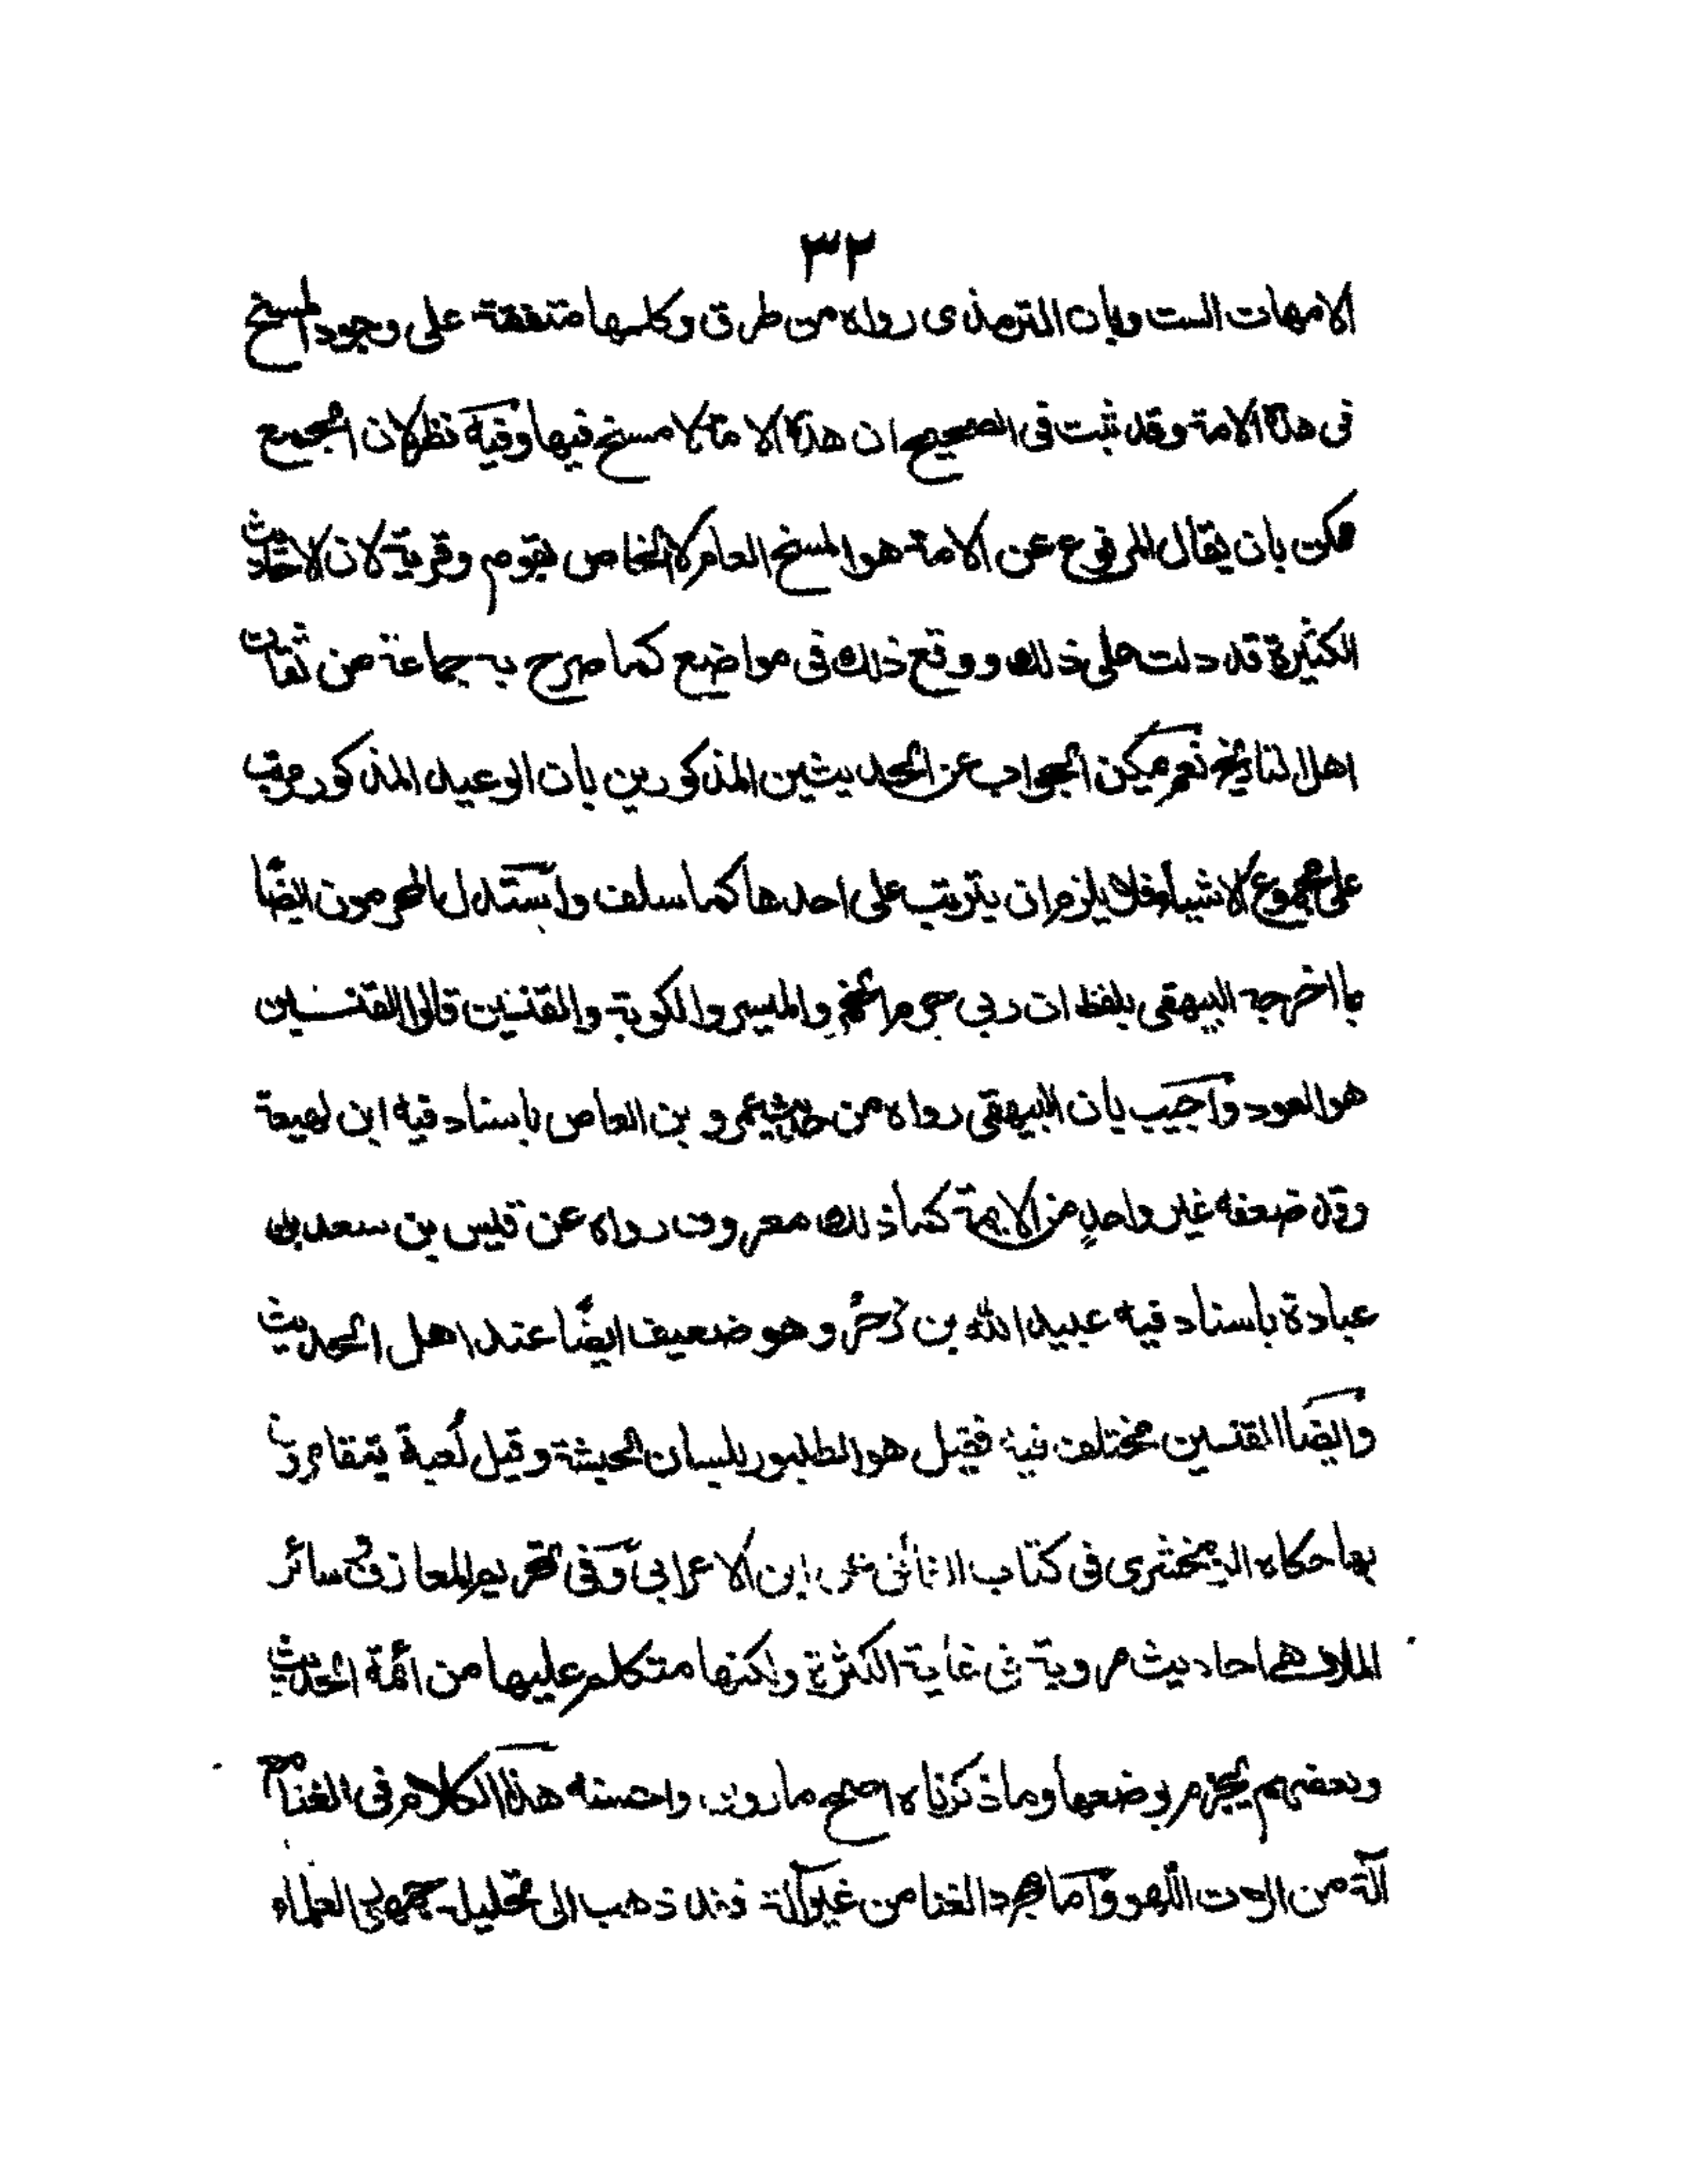 ٣٢
الامهات الست وبان الترمذى رواه من طرق وكلها متفقة على وجود المسخ
فى هذه الامة وقد ثبت فى الصحيح ان هذه الامة لا مسخ فيها وفيه نظر لان الجمع
ممكن بان يقال المرفوع عن الامة هو المسخ العام لا الخاص بقوم وقرية لان الاحاديث
الكثيرة قد دلت على ذلك ووقع ذلك فى مواضع كما صرح به جماعة من ثقات
اهل التاريخ نعم يمكن الجواب عن الحديثين المذكورين بان الوعيد المذكور مرتب
على مجموع الاشياء فلا يلزم ان يترتب على احدها كما سلف واستدل المحرمون ايضًا
بما اخرجه البيهقى بلفظ ان ربى حرم الخمر والميسر والكوبة والقنين قالوا القنسين
هو العود واجيب بان البيهقى رواه من حديث عمرو بن العاص باسناد فيه ابن لهيعة
وقد ضعفه غير واحدٍ من الايمة كما ذلك معروف رواه عن قيس بن سعد بن
عبادة باسناد فيه عبيد الله بن زحر وهو ضعيف ايضًا عند اهل الحديث
وايضًا القنسين مختلف فيه فقيل هو الطنبور بلسان الحبشة وقيل لُعبة يتقامرون
بها حكاه الزمخشرى فى كتاب الفائق عن ابن الاعرابى وفى تحريم المعازف وسائر
الملاهى احاديث مروية فى غاية الكثرة ولكنها متكلم عليها من ائمة الحديث
وبعضهم يجزم بوضعها وما ذكرناه اصح ما روى واحسنه هذا الكلام فى الغنا مع
آلة من آلات اللهو واما مجرد الغنا من غير آلة فقد ذهب الى تحليله جمهور العلماء